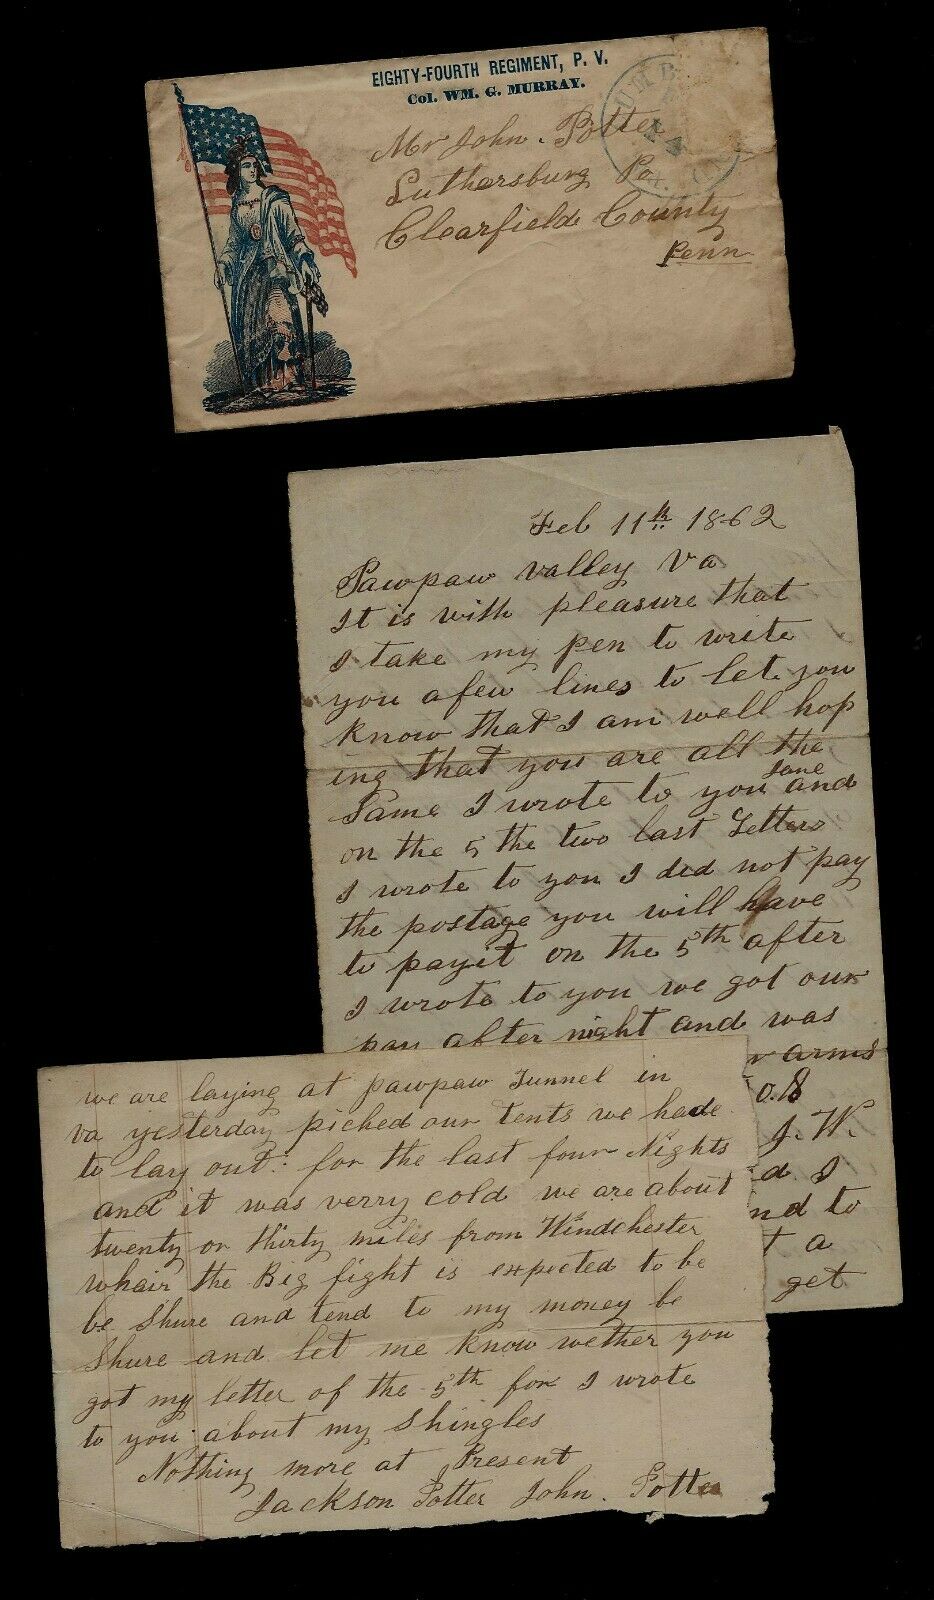 EIGHTY-FOURTH REGIMENT, P. V.
Col. WM. G. MURRAY.
Mr John. Potter
Luthersburg Po
Clearfield County
Penn
Feb 11th 1862
Pawpaw valley Va
It is with pleasure that
I take my pen to write
you afew lines to let you
know that I am well hop
ing that you are all the
Same I wrote to you and
Jane
on the 5 the two last Letters
I wrote to you I did not pay
the postage you will have
to payit on the 5th after
I wrote to you we got our
pay after night and was
arms
o. 8
J. W.
d I
nd to
t a
get
we are laying at pawpaw Tunnel in
va yesterday piched our tents we hade
to lay out: for the last four Nights
and it was verry cold we are about
twenty or thirty miles from Windchester
whair the Big fight is expected to be
be Shure and tend to my money be
Shure and let me know wether you
got my letter of the 5th for I wrote
to you about my Shingles
Nothing more at Present
Jackson Potter John. Potter